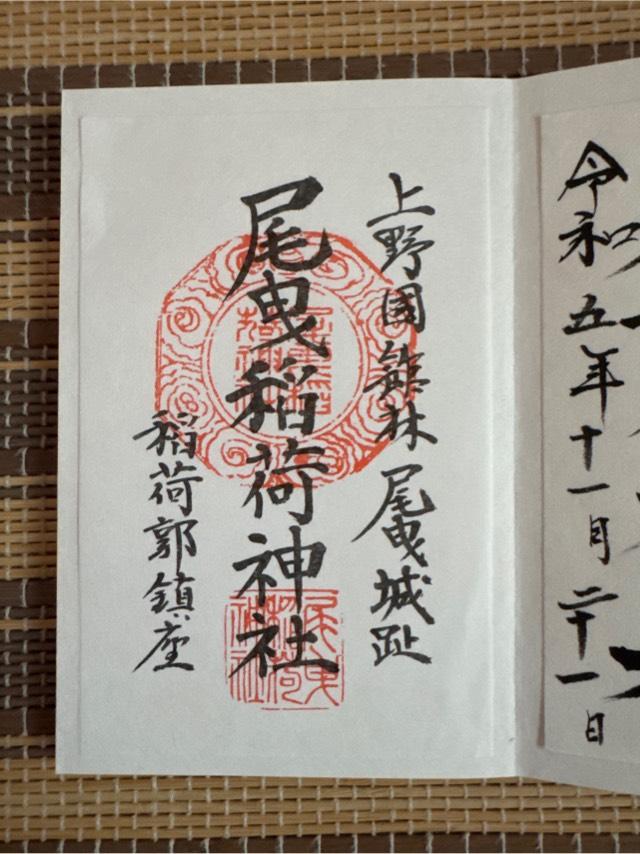 令和五年十一月二十一日
上野國館林尾曳城趾
尾曳稲荷神社
稲荷郭鎮座